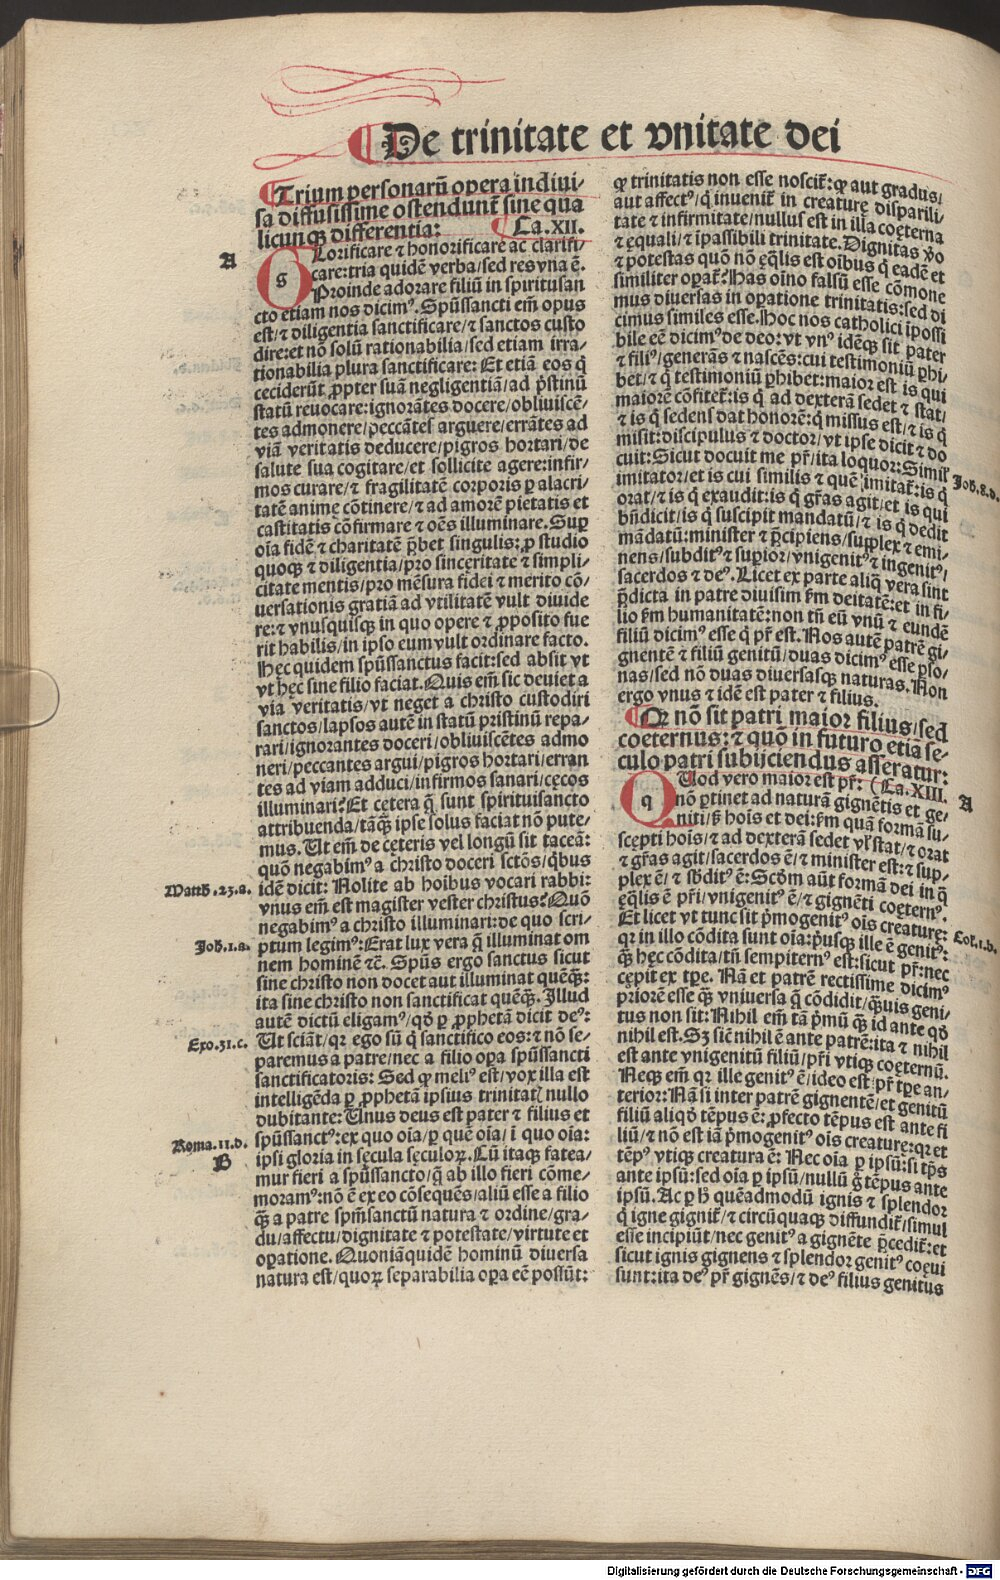 De trinitate et vnitate dei
Trium personarū opera indiui/
sa diffusissime ostendunt̄ sine qua
licunqꝫ differentia: Ca.XII.
A
gLorificare ⁊ honorificare ac clarifi/
care:tria quidē verba/sed res vna ē.
Proinde adorare filiū in spiritusan
cto etiam nos dicimꝰ. Spūssancti em̄ opus
est/⁊ diligentia sanctificare/⁊ sanctos custo
dire:et nō solū rationabilia/sed etiam irra/
tionabilia plura sanctificare: Et etiā eos q̄
ceciderūt ꝓpter suā negligentiā/ad p̄stinū
statū reuocare:ignorātes docere/obliuiscē/
tes admonere/peccātes arguere/errātes ad
viā veritatis deducere/pigros hortari/de
salute sua cogitare/et sollicite agere:infir/
mos curare/⁊ fragilitatē corporis ꝑ alacri/
tatē animę cōtinere/⁊ ad amorē pietatis et
castitatis cōfirmare ⁊ oēs illuminare. Suꝑ
oīa fidē ⁊ charitatē p̄bet singulis:ꝓ studio
quoqꝫ ⁊ diligentia/pro sinceritate ⁊ simpli/
citate mentis/pro mēsura fidei ⁊ merito cō/
uersationis gratiā ad vtilitatē vult diuide
re:⁊ vnusquisqꝫ in quo opere ⁊ ꝓposito fue
rit habilis/in ipso eum vult ordinare facto.
Hęc quidem spūssanctus facit:sed absit vt
vt hęc sine filio faciat. Quis em̄ sic deuiet a
via veritatis/vt neget a christo custodiri
sanctos/lapsos autē in statū pristinū repa/
rari/ignorantes doceri/obliuiscētes admo
neri/peccantes argui/pigros hortari/erran
tes ad viam adduci/infirmos sanari/cęcos
illuminari? Et cetera q̄ sunt spirituisancto
attribuenda/tāqꝫ ipse solus faciat nō pute/
mus. Ut em̄ de ceteris vel longū sit taceā:
quō negabimꝰ a christo doceri sctōs/qͥbus
Matth.23.a. idē dicit: Nolite ab hoībus vocari rabbi:
vnus em̄ est magister vester christus? Quō
negabimꝰ a christo illuminari:de quo scri/
Joh.1.a. ptum legimꝰ:Erat lux vera q̄ illuminat om
nem hominē ⁊c̄. Spūs ergo sanctus sicut
sine christo non docet aut illuminat quēqꝫ:
ita sine christo non sanctificat quēqꝫ. Illud
autē dictū eligamꝰ/qd̄ ꝑ ꝓphetā dicit deꝰ:
Exo.31.c. Ut sciāt/qꝛ ego sū q̄ sanctifico eos:⁊ nō se/
paremus a patre/nec a filio oꝑa spūssancti
sanctificatoris: Sed qꝛ meliꝰ est/vox illa est
intelligēda ꝑ ꝓphetā ipsius trinitatꝭ nullo
dubitante: Unus deus est pater ⁊ filius et
Roma.11.d. spūssanctꝰ:ex quo oīa/ꝑ quē oīa/ī quo oīa:
B ipsi gloria in sęcula sęculoꝝ. Cū itaqꝫ fatea/
mur fieri a spūssancto/q̄ ab illo fieri cōme/
moramꝰ:nō ē ex eo cōsequēs/aliū esse a filio
qꝫ a patre spm̄sanctū natura ⁊ ordine/gra/
du/affectu/dignitate ⁊ potestate/virtute et
oꝑatione. Quoniāquidē hominū diuersa
natura est/quoꝝ separabilia oꝑa eē possūt:
qꝛ trinitatis non esse noscit̄:qꝛ aut gradus/
aut affectꝰ/q̄ inuenit̄ in creaturę disparili/
tate ⁊ infirmitate/nullus est in illa coęterna
⁊ ęquali/⁊ īpassibili trinitate. Dignitas v̄o
⁊ potestas quō nō ęqͣlis est oībus q̄ eadē et
similiter oꝑat̄? Has oīno falsū esse cōmone
mus diuersas in oꝑatione trinitatis:sed di
cimus similes esse. Hoc nos catholici īpossi
bile eē dicimꝰ de deo: vt vnꝰ idēqꝫ sit pater
⁊ filiꝰ/generās ⁊ nascēs: cui testimoniū ꝑhi/
bet/⁊ q̄ testimoniū ꝑhibet:maior est is qui
maiorē cōfitet̄:is q̄ ad dexterā sedet ⁊ stat/
⁊ is q̄ sedens dat honorē:q̄ missus est/⁊ is q̄
misit: discipulus ⁊ doctor/vt ipse dicit ⁊ do
cuit: Sicut docuit me pr̄/ita loquor: Simil̄ Joh.8.d.
imitator/et is cui similis ⁊ quē imitat̄: is q̄
orat/⁊ is q̄ exaudit:is q̄ gr̄as agit/et is qui
bn̄dicit/is q̄ suscipit mandatū/⁊ is q̄ dedit
mādatū:minister ⁊ p̄cipiens/supplex ⁊ emi/
nens/subditꝰ ⁊ suꝑior/vnigenitꝰ ⁊ ingenitꝰ/
sacerdos ⁊ deꝰ. Licet ex parte aliq̄ vera sint
p̄dicta in patre diuisim sm̄ deitatē:et in fi/
lio sm̄ humanitatē: non tn̄ eū vnū ⁊ eundē
filiū dicimꝰ esse q̄ pr̄ est. Nos autē patrē gi/
gnentē ⁊ filiū genitū/duas dicimꝰ esse ꝑso/
nas/sed nō duas diuersasqꝫ naturas. Non
ergo vnus ⁊ idē est pater ⁊ filius.
Qꝛ nō sit patri maior filius/sed
coeternus: ⁊ quō in futuro etiā se/
culo patri subijciendus asseratur:
qUod vero maior est pr̄: Ca.XIII.
nō ꝑtinet ad naturā gignētis et ge/ A
niti/s̄ hoīs et dei:sm̄ quā formā su/
scępti hoīs/⁊ ad dexterā sedet vl̓ stat/⁊ orat
⁊ gr̄as agit/sacerdos ē/⁊ minister est:⁊ sup/
plex ē/⁊ sb̄ditꝰ ē: Scd̄m aūt formā dei in q̄
ęqͣlis ē pr̄i/vnigenitꝰ ē/⁊ gignēti coęternꝰ.
Et licet vt tunc sit p̄mogenitꝰ oīs creaturę: Col.1.b.
qꝛ in illo cōdita sunt oīa:pͥusqꝫ ille ē genitꝰ:
qꝫ hęc cōdita/tn̄ sempiternꝰ est:sicut pr̄:nec
cępit ex tp̄e. Nā et patrē rectissime dicimꝰ
priorē esse qꝫ vniuersa q̄ cōdidit/qͣuis geni/
tus non sit: Nihil em̄ tā pͥmū qꝫ id ante qd̄
nihil est. Sꝫ siē nihil ē ante patrē:ita ⁊ nihil
est ante vnigenitū filiū/pr̄i vtiqꝫ coęternū.
Neqꝫ em̄ qꝛ ille genitꝰ ē/ideo est pr̄ tp̄e an/
terior: Nā si inter patrē gignentē/et genitū
filiū aliqd̄ tēpus ē: ꝓfecto tēpus est ante fi
liū/⁊ nō est iā pͥmogenitꝰ oīs creaturę:qꝛ et
tēpꝰ vtiqꝫ creatura ē: Nec oīa ꝑ ipsū:si tp̄s
ante ipsū: sed oīa ꝑ ipsū/nullū g̊ tēpus ante
ipsū. Ac ꝑ h̄ quēadmodū ignis ⁊ splendor
q̄ igne gignit̄/⁊ circūquaqꝫ diffundit̄/simul
esse incipiūt/nec genitꝰ a gignēte p̄cedit̄:et
sicut ignis gignens ⁊ splendor genitꝰ coęui
sunt:ita deꝰ pr̄ gignēs/⁊ deꝰ filius genitus
Digitalisierung gefördert durch die Deutsche Forschungsgemeinschaft - DFG